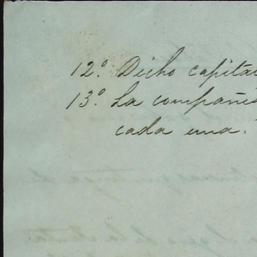 12º Dicho capita
13º La compañi
cada una.